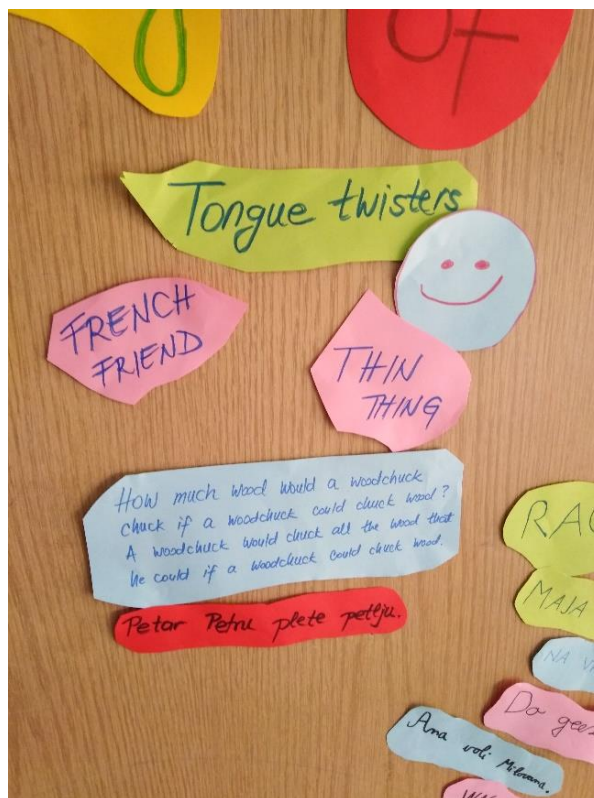 of
Tongue twisters
FRENCH
FRIEND
THIN
THING
How much wood would a woodchuck
chuck if a woodchuck could chuck wood?
A woodchuck would chuck all the wood that
he could if a woodchuck could chuck wood.
Petar Petru plete petlju.
MAJA
Do
Ana voli Milovana.